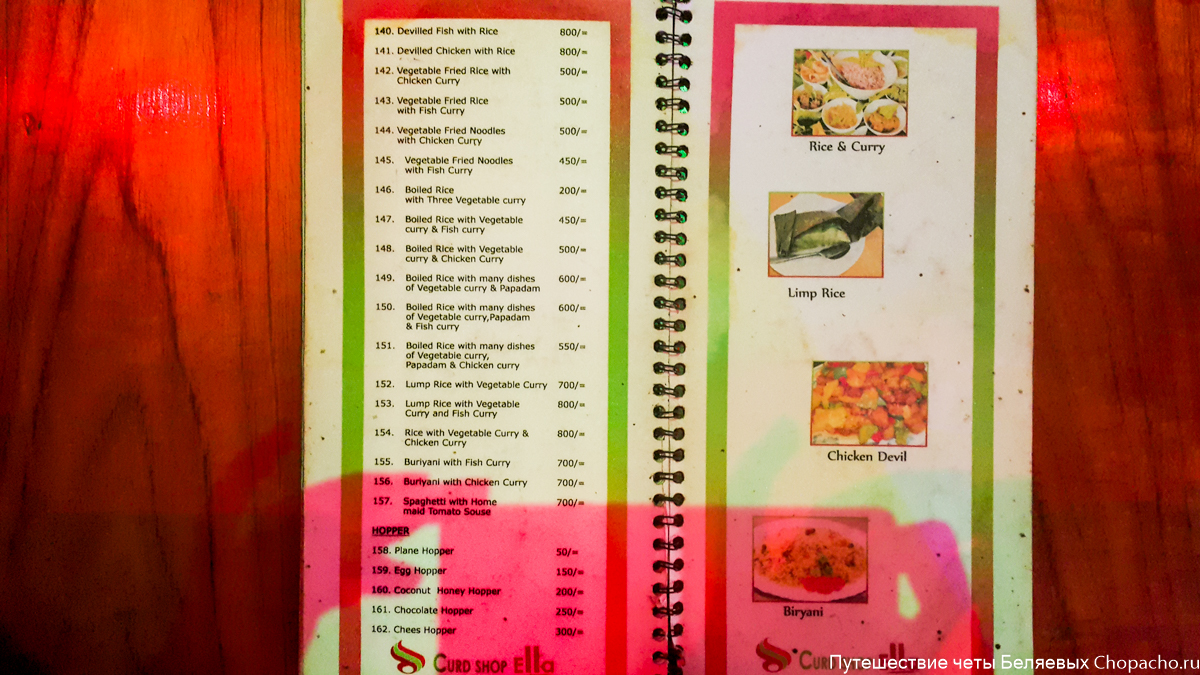 140. Devilled Fish with Rice 800/=
141. Devilled Chicken with Rice 800/=
142. Vegetable Fried Rice with 500/=
Chicken Curry
143. Vegetable Fried Rice 500/=
with Fish Curry
144. Vegetable Fried Noodles 500/=
with Chicken Curry
145. Vegetable Fried Noodles 450/=
with Fish Curry
146. Boiled Rice 200/=
with Three Vegetable curry
147. Boiled Rice with Vegetable 450/=
curry & Fish curry
148. Boiled Rice with Vegetable 500/=
curry & Chicken Curry
149. Boiled Rice with many dishes 600/=
of Vegetable curry & Papadam
150. Boiled Rice with many dishes 600/=
of Vegetable curry,Papadam
& Fish curry
151. Boiled Rice with many dishes 550/=
of Vegetable curry,
Papadam & Chicken curry
152. Lump Rice with Vegetable Curry 700/=
153. Lump Rice with Vegetable 800/=
Curry and Fish Curry
154. Rice with Vegetable Curry & 800/=
Chicken Curry
155. Buriyani with Fish Curry 700/=
156. Buriyani with Chicken Curry 700/=
157. Spaghetti with Home 700/=
maid Tomato Souse
HOPPER
158. Plane Hopper 50/=
159. Egg Hopper 150/=
160. Coconut Honey Hopper 200/=
161. Chocolate Hopper 250/=
162. Chees Hopper 300/=
CURD SHOP Ella
Rice & Curry
Limp Rice
Chicken Devil
Biryani
CURD SHOP Ella
Путешествие четы Беляевых Chopacho.ru